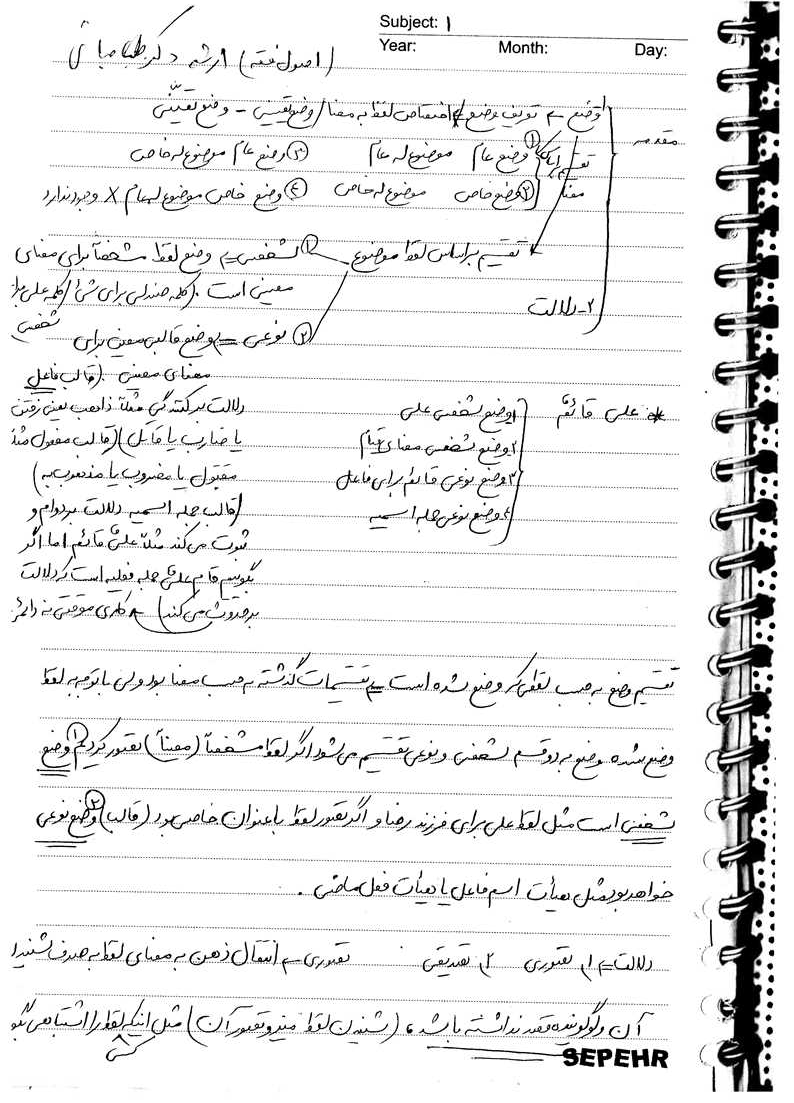 Subject: 1
Year: Month: Day:
(اصول فقه) ارشد دکتر طباطبائی
مقدمه
۱وضع ← تعریف وضع ← اختصاص لفظ به معنا / وضع تعیینی - وضع تعیّنی
تقسیم براساس معنا
۱ وضع عام موضوع له عام ۳ وضع عام موضوع له خاص
۲ وضع خاص موضوع له خاص ۴ وضع خاص موضوع له عام X وجود ندارد
تقسیم براساس لفظ موضوع ۱ شخصی ← وضع لفظ مشخصاً برای معنای
معینی است. (کلمه صندلی برای شئ / کلمه علی برای
شخص)
۲- دلالت
۲ نوعی ← وضع قالب معین برای
معنای معینی. (قالب فاعل
دلالت بر کنندگی مثلاً ذاهب یعنی رفتن
یا ضارب یا قاتل) (قالب مفعول مثلا
مقتول یا مضروب یا مذهوب به)
(قالب جمله اسمیه دلالت بر دوام و
ثبوت می‌کند مثلاً علیٌ قائم اما اگر
بگوییم قام علیٌ جمله فعلیه است که دلالت
بر حدوث می‌کند) ← کاری موقتی نه دائم
* علی قائمٌ
۱ وضع شخصی علی
۲ وضع شخصی معنای قیام
۳ وضع نوعی قائم برای فاعل
۴ وضع نوعی جمله اسمیه
تقسیم وضع به حسب لفظی که وضع شده است ← تقسیمات گذشته به حسب معنا بود ولی با توجه به لفظ
وضع شده وضع به دو قسم شخصی و نوعی تقسیم می‌شود اگر لفظ مشخصاً (معیناً) تصور گردد ۱ وضع
شخصی است مثل لفظ علی برای فرزند رضا و اگر تصور لفظ با عنوان خاصی بود (قالب) ۲ وضع نوعی
خواهد بود مثل هیأت اسم فاعل یا هیأت فعل ماضی.
دلالت ← ۱. تصوری ۲. تصدیقی تصوری ← انتقال ذهن به معنای لفظ به صرف شنیدن
آن و گوینده قصد نداشته باشد، (شنیدن لفظ میز و تصور آن) مثل اینکه لفظ را اشتباهی
SEPEHR